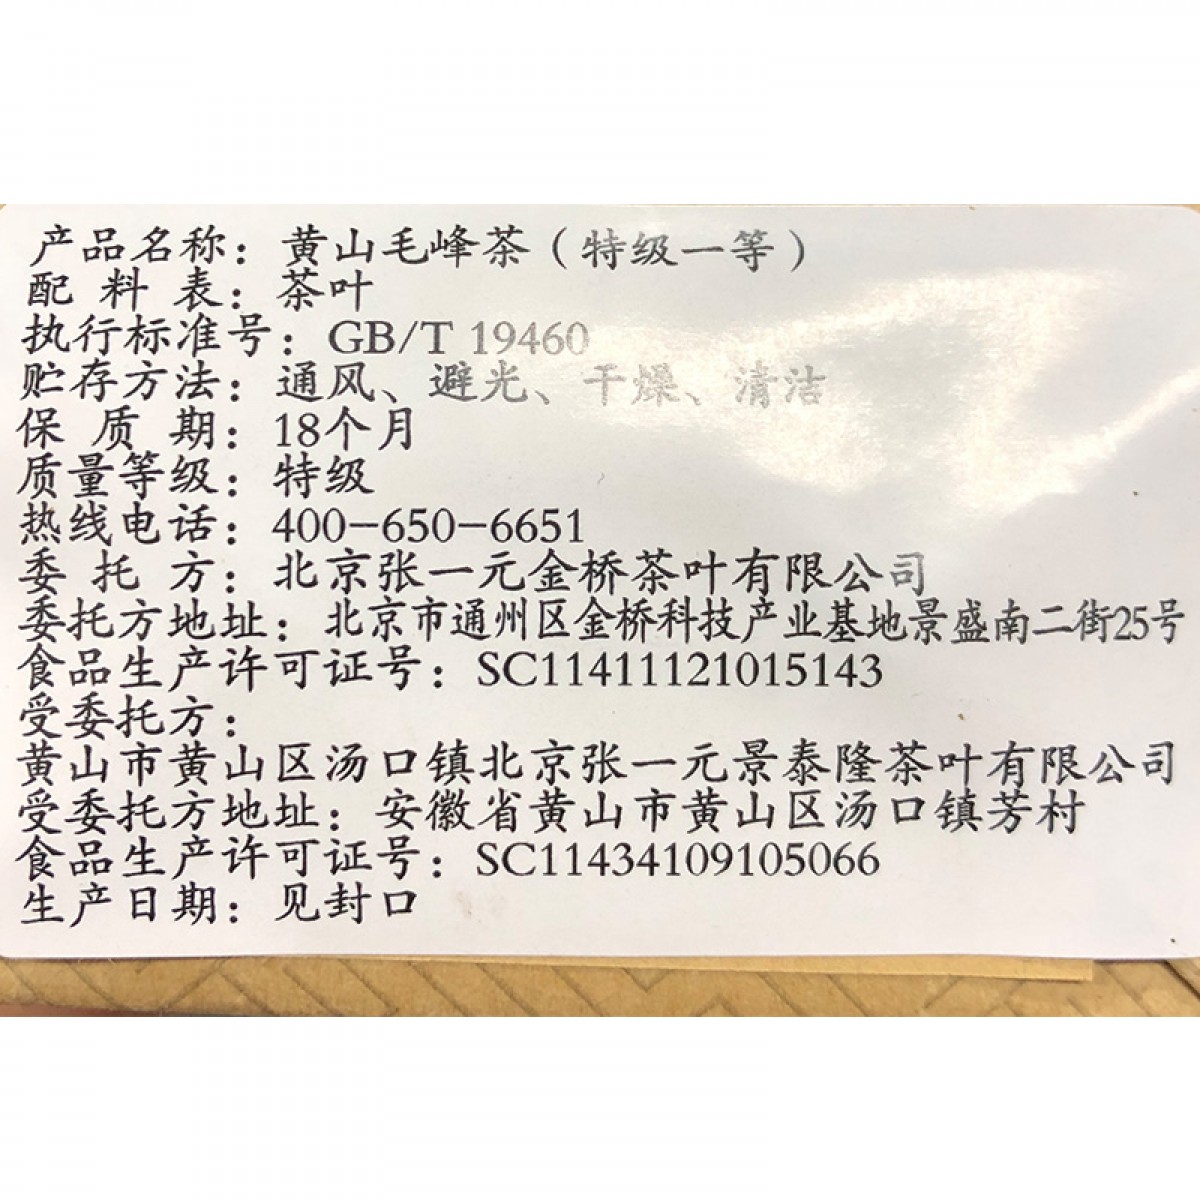 产品名称：黄山毛峰茶（特级一等）
配料表：茶叶
执行标准号：GB/T 19460
贮存方法：通风、避光、干燥、清洁
保质期：18个月
质量等级：特级
热线电话：400-650-6651
委托方：北京张一元金桥茶叶有限公司
委托方地址：北京市通州区金桥科技产业基地景盛南二街25号
食品生产许可证号：SC11411121015143
受委托方：
黄山市黄山区汤口镇北京张一元景泰隆茶叶有限公司
受委托方地址：安徽省黄山市黄山区汤口镇芳村
食品生产许可证号：SC11434109105066
生产日期：见封口